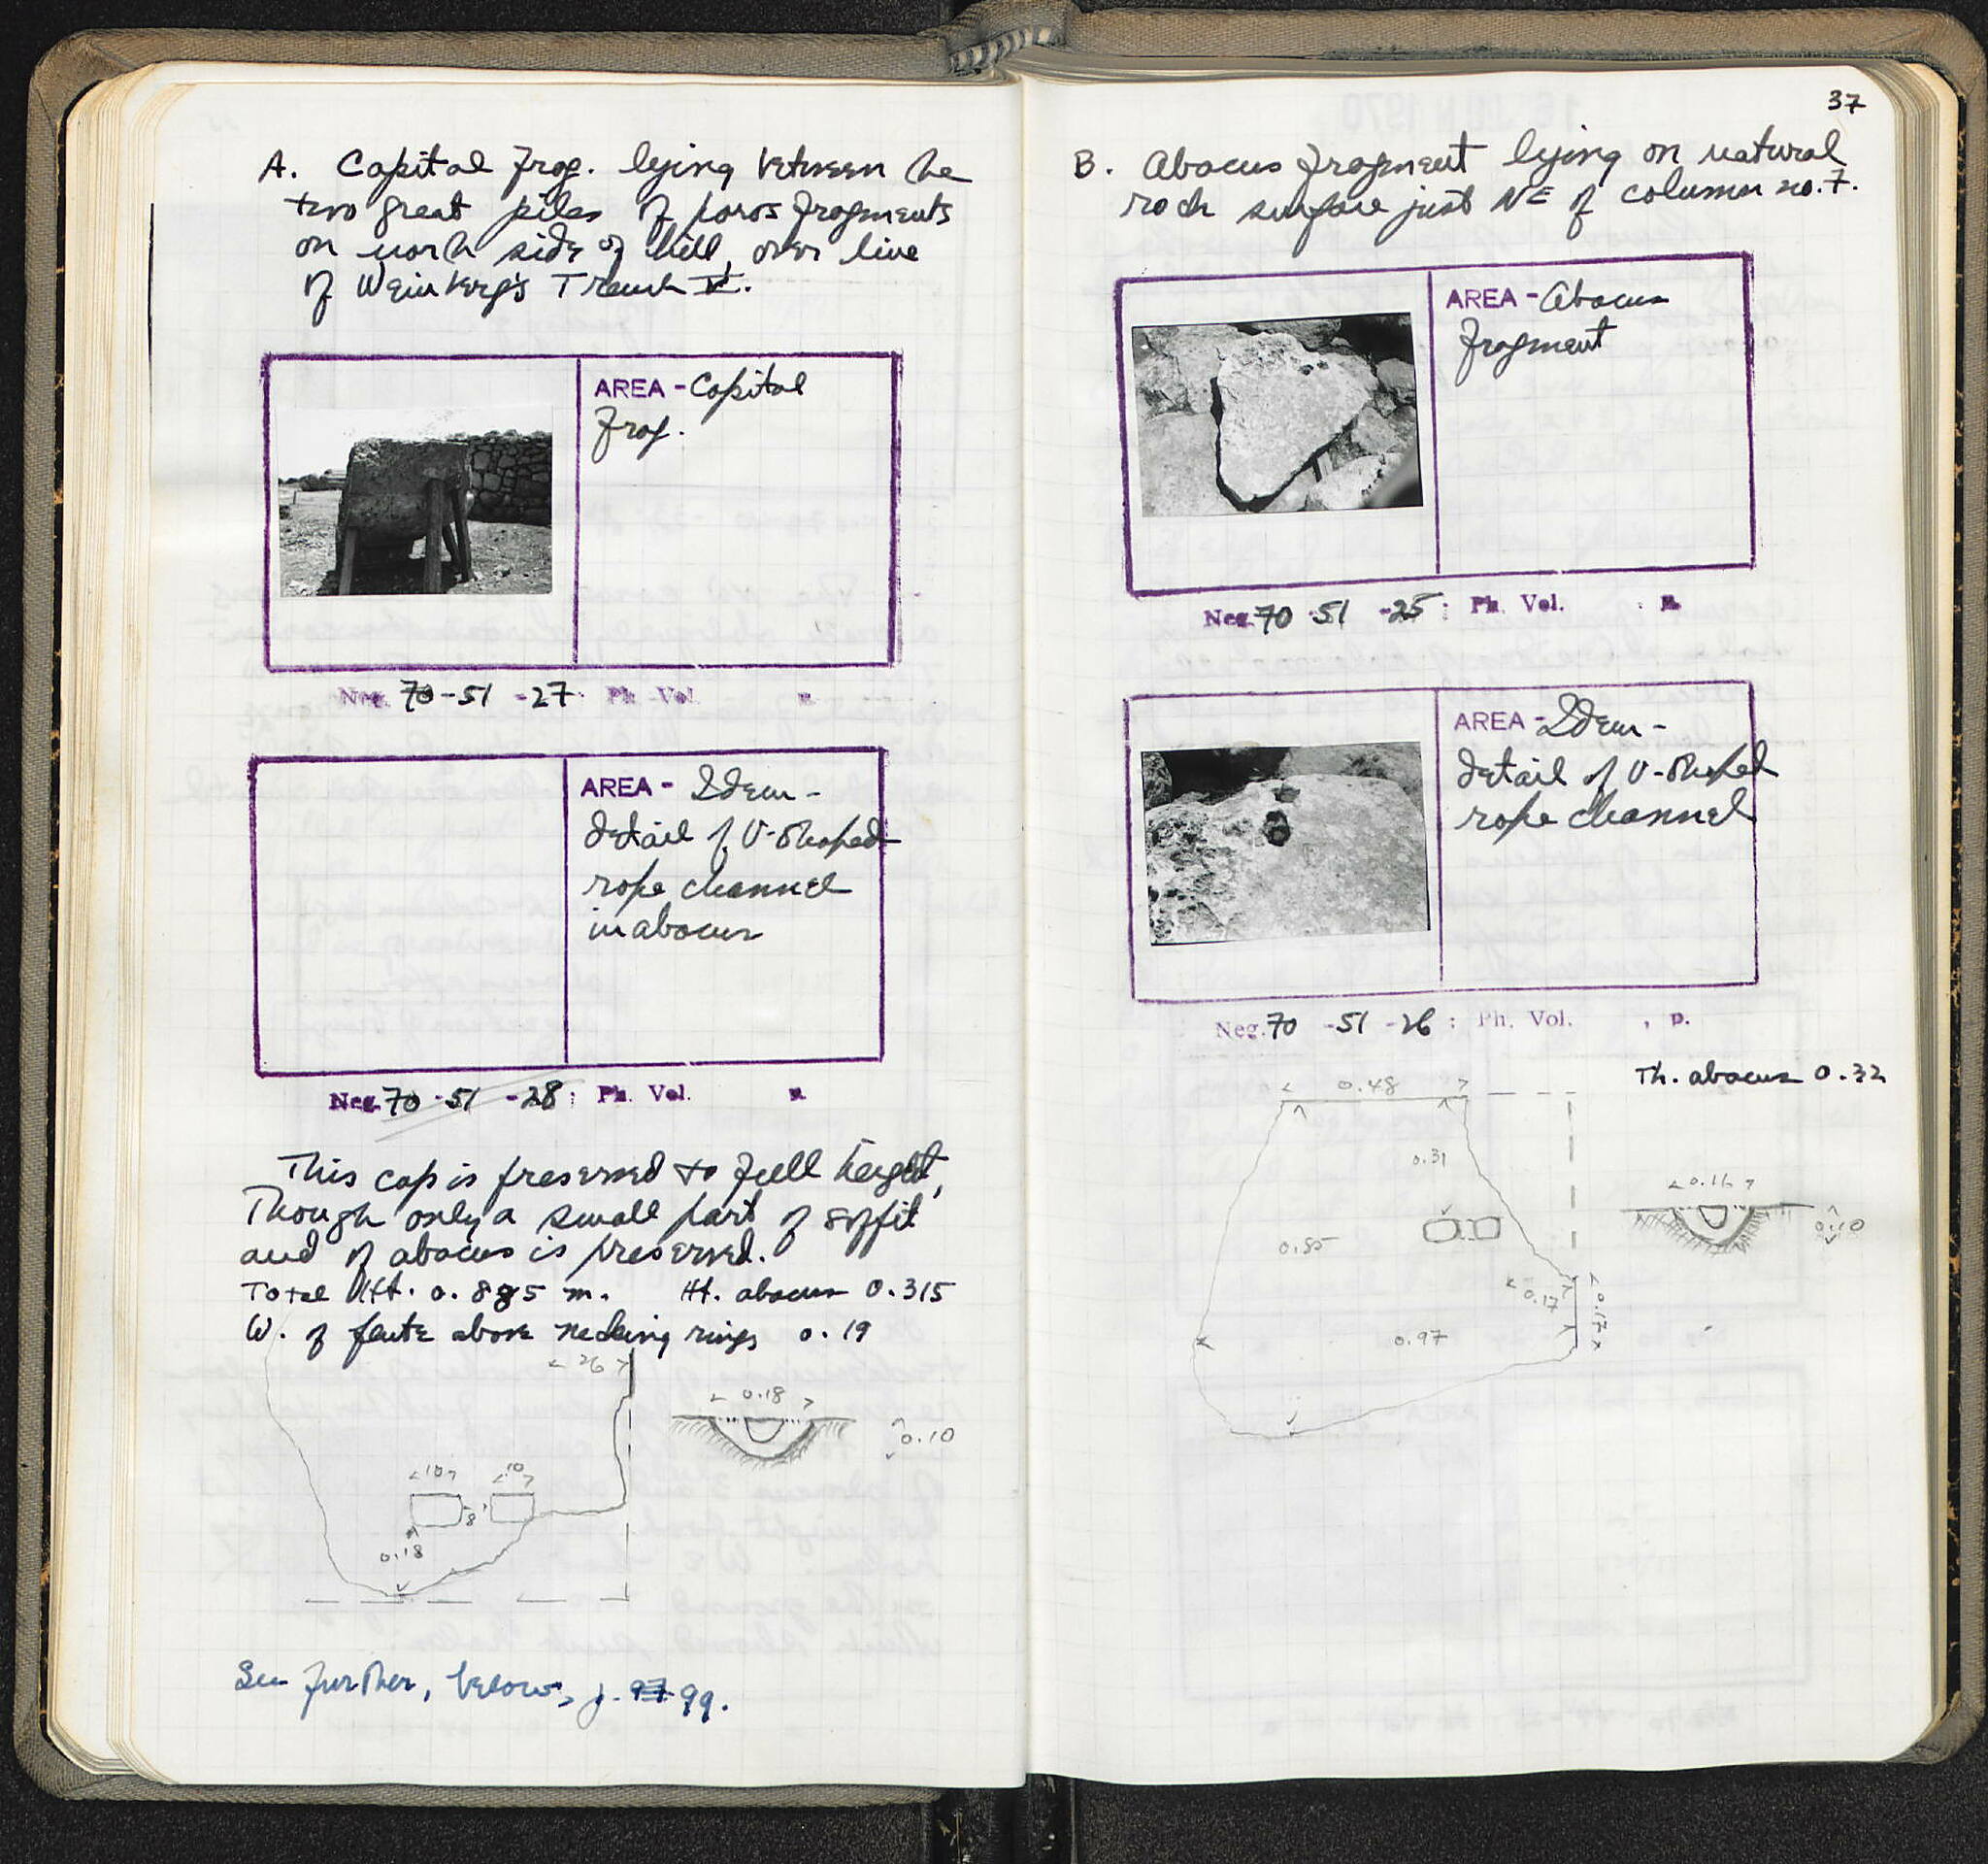 A. Capital frag. lying between the
two great piles of poros fragments
on north side of hill, over line
of Weinberg's Trench
AREA - Capital
frag.
Neg. 70 - 51 - 27 : Ph. Vol. p.
AREA - Idem -
detail of U-shaped
rope channel
in abacus
Neg. 70 - 51 - 28 : Ph. Vol. p.
This cap is preserved to full height,
Though only a small part of soffit
and of abacus is preserved.
Total Ht. 0.885 m. Ht. abacus 0.315
W. of flute above necking rings 0.19
26
0.18
0.10
10 10
8
0.18
See further, below, p. 97 99.
37
B. Abacus fragment lying on natural
rock surface just NE of column no. 7.
AREA - Abacus
fragment
Neg. 70 - 51 - 25 : Ph. Vol. : p.
AREA - Idem -
detail of U-shaped
rope channel
Neg. 70 - 51 - 26 : Ph. Vol. , p.
Th. abacus 0.32
0.48
0.31
0.16
0.10
0.85
0.17
0.17
0.97